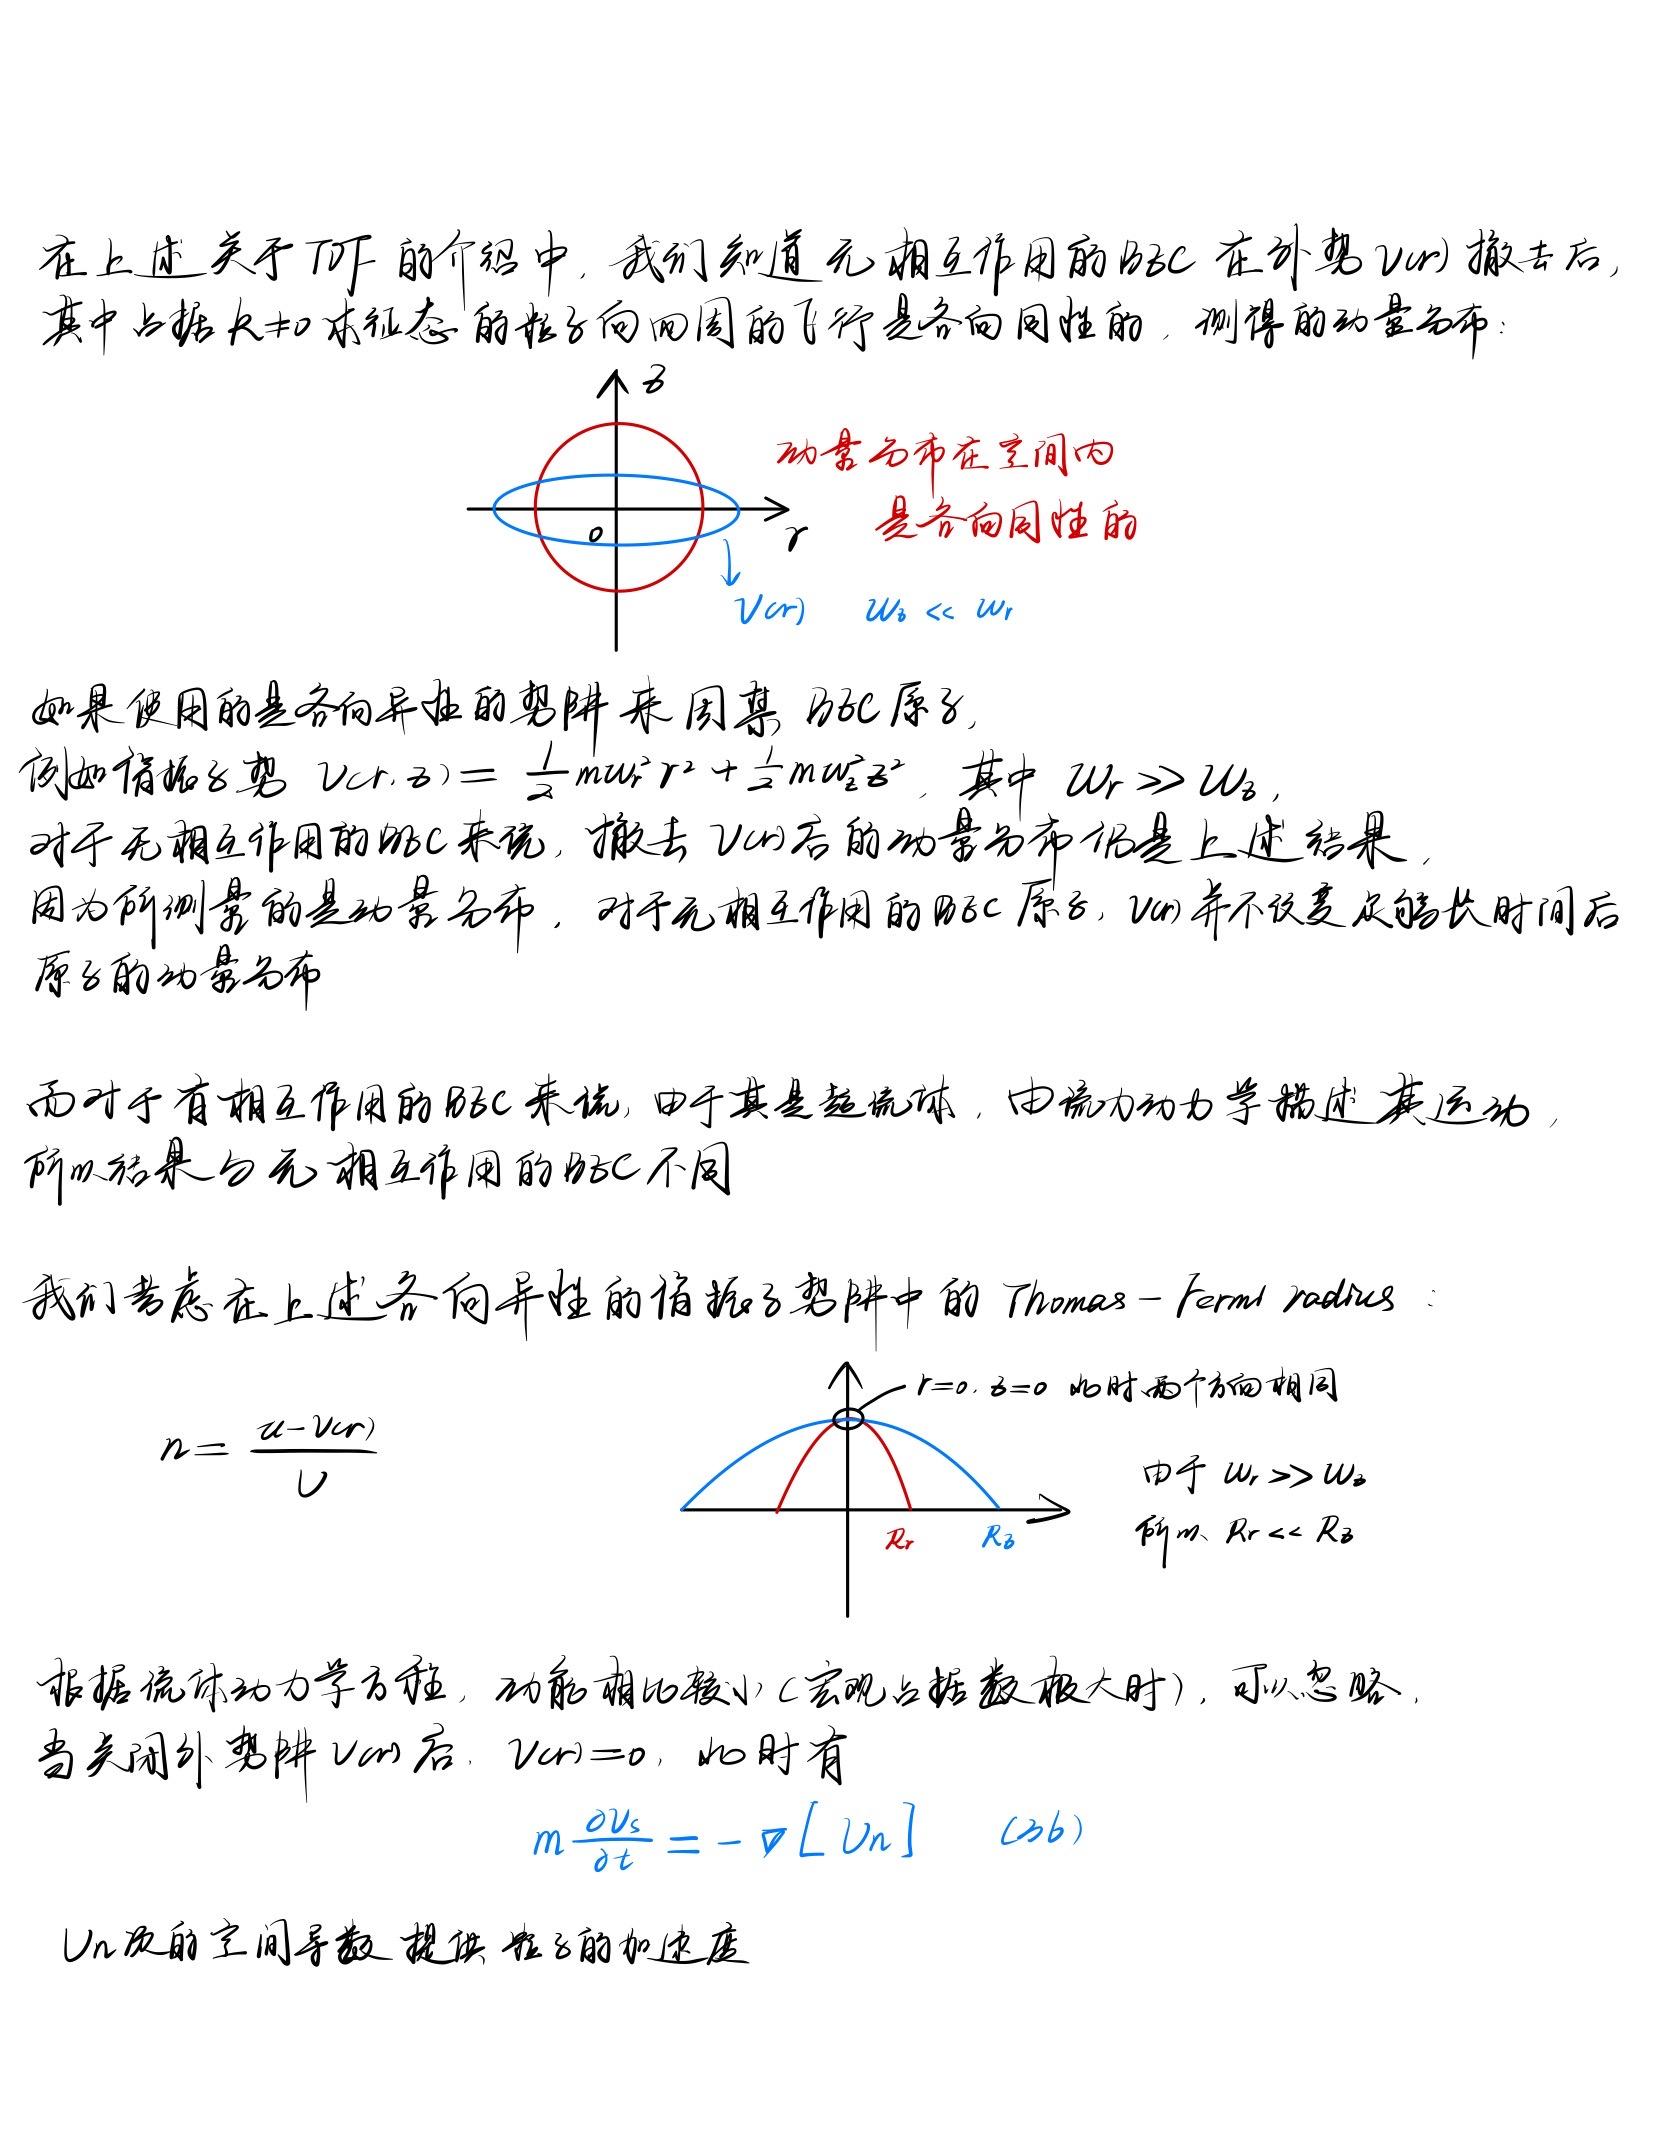 在上述关于TOF的介绍中，我们知道无相互作用的BEC在外势V(r)撤去后，
其中占据k≠0本征态的粒子向四周的飞行是各向同性的，测得的动量分布：
z
动量分布在空间内
是各向同性的
0
r
V(r) ωz << ωr
如果使用的是各向异性的势阱来囚禁BEC原子，
例如谐振子势 V(r.z) = 1/2 mωr² r² + 1/2 mωz² z²，其中 ωr >> ωz，
对于无相互作用的BEC来说，撤去V(r)后的动量分布仍是上述结果，
因为所测量的是动量分布，对于无相互作用的BEC原子，V(r)并不改变足够长时间后
原子的动量分布
而对于有相互作用的BEC来说，由于其是超流体，由流力动力学描述其运动，
所以结果与无相互作用的BEC不同
我们考虑在上述各向异性的谐振子势阱中的 Thomas-Fermi radius：
r=0. z=0 此时两个方向相同
n = (u-V(r))/U
由于 ωr >> ωz
所以 Rr << Rz
Rr Rz
根据流体动力学方程，动能相比较小(宏观占据数极大时)，可以忽略，
当关闭外势阱V(r)后，V(r)=0，此时有
m ∂Vs/∂t = -∇[Un] (36)
Un项的空间导数提供粒子的加速度